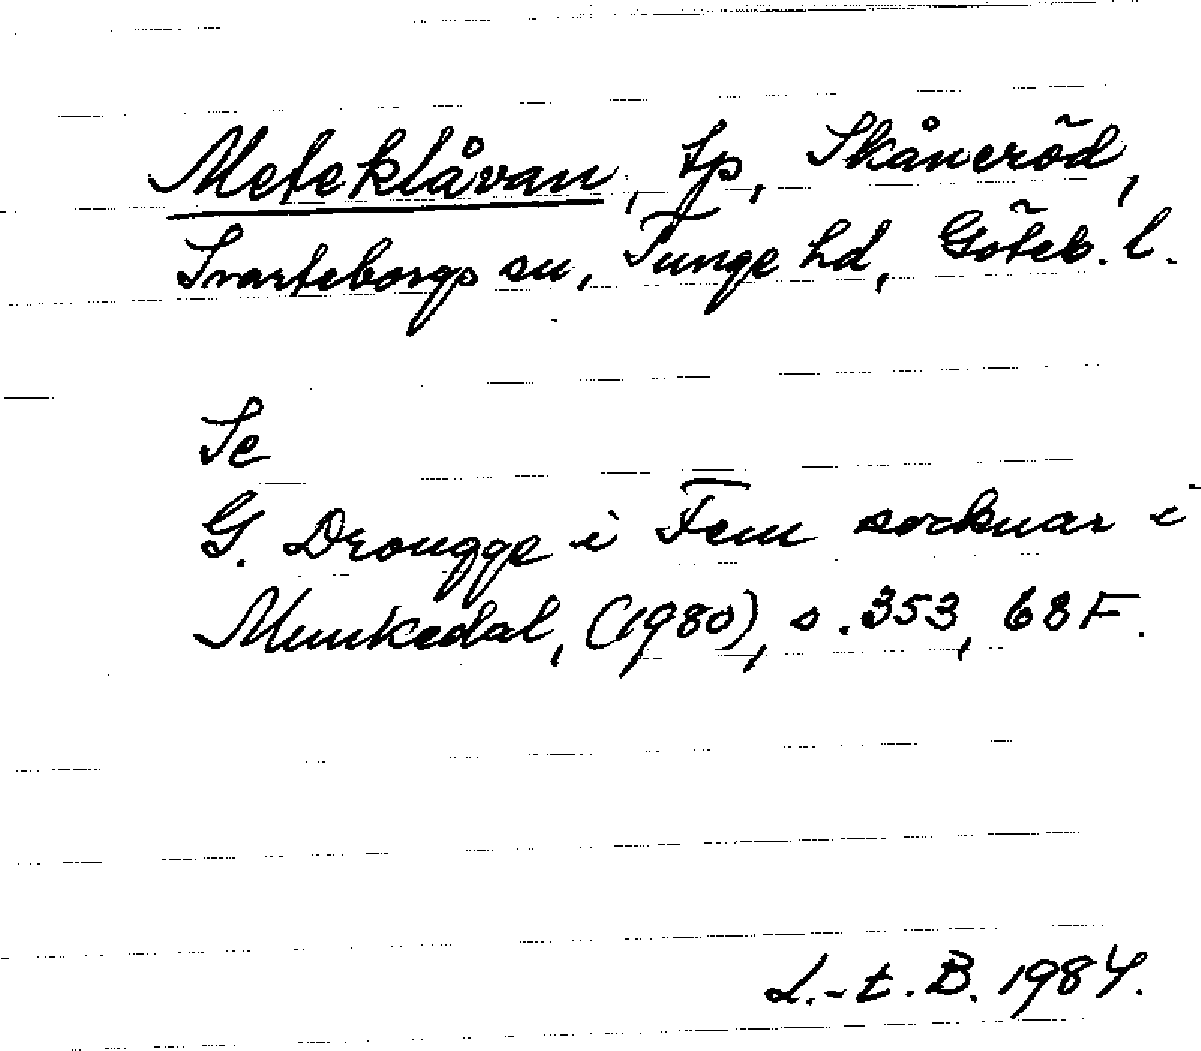 Meteklåvan, tp, Skåneröd,
Svarteborgs sn, Tunge hd, Göteb. l.
Se
G. Drougge i Fem socknar i
Munkedal, (1980), s. 353, 68 F.
L.-t. B. 1984.